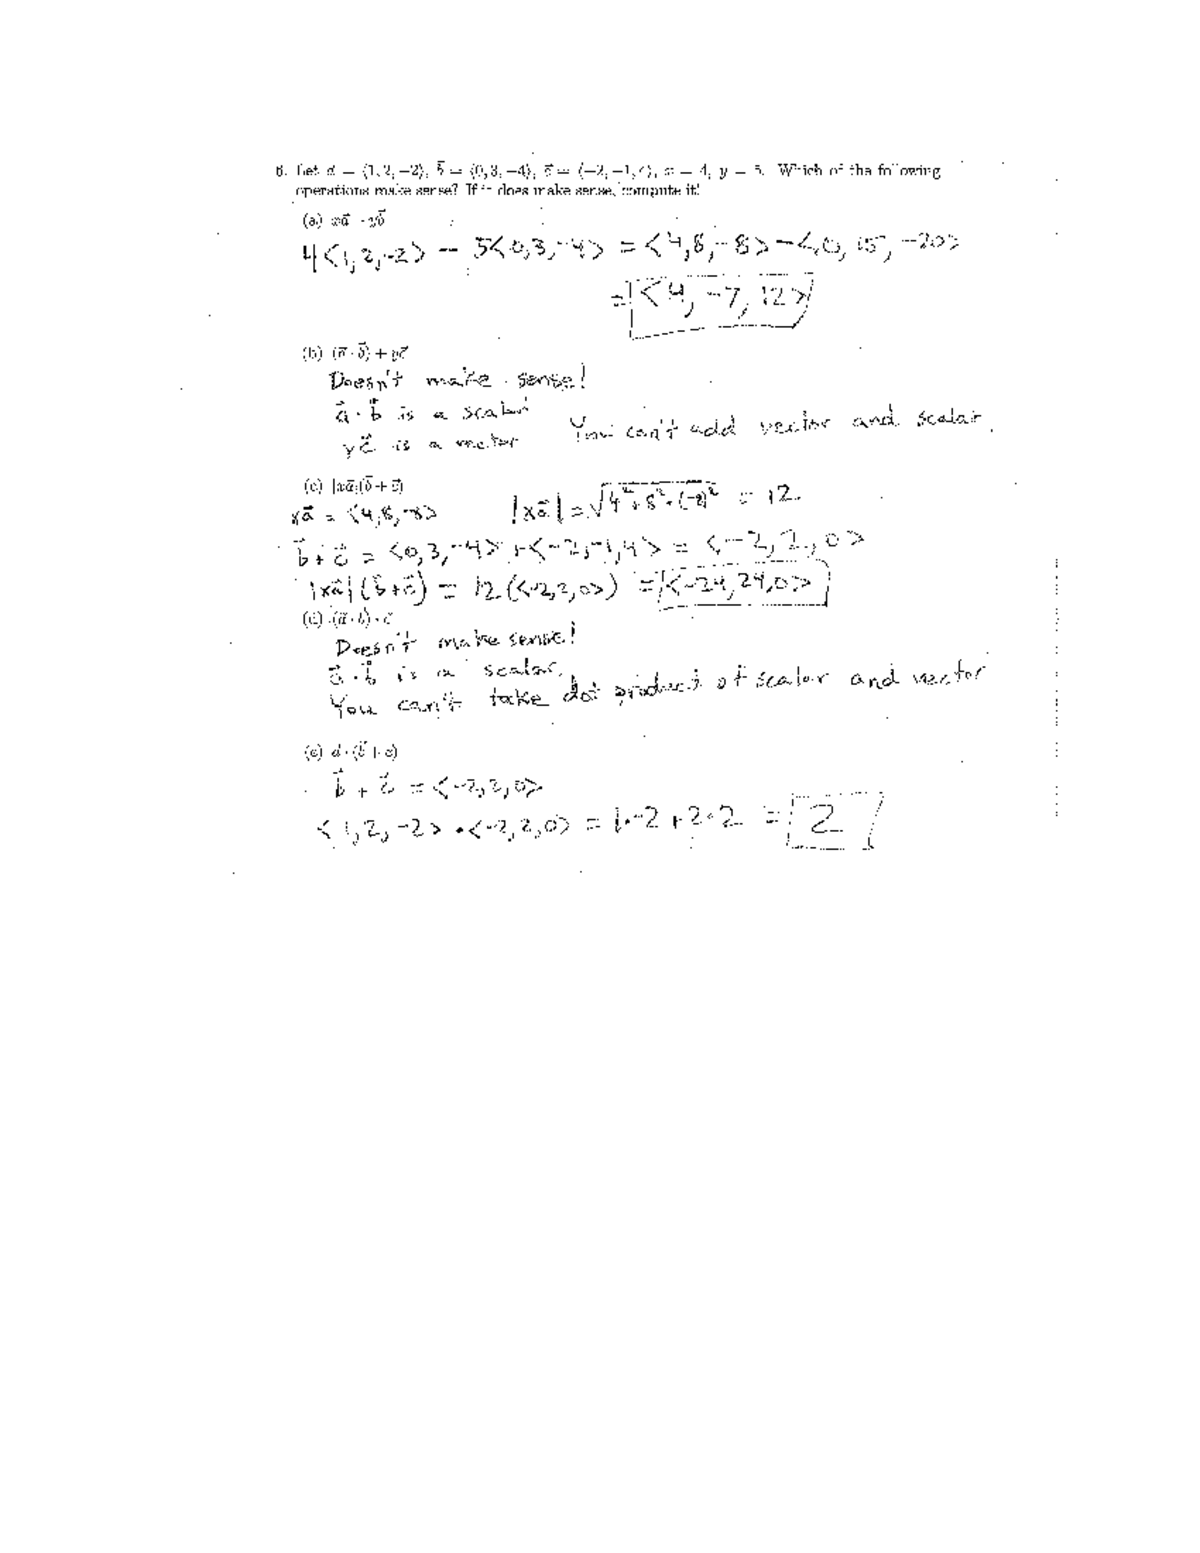 6. Let a⃗ = ⟨1, 2, −2⟩, b⃗ = ⟨0, 3, −4⟩, c⃗ = ⟨−2, −1, 4⟩, x = 4, y = 5. Which of the following
operations make sense? If it does make sense, compute it!
(a) xa⃗ - yb⃗
4<1, 2, -2> - 5<0, 3, -4> = <4, 8, -8> - <0, 15, -20>
= <4, -7, 12>
(b) (a⃗ · b⃗) + yc⃗
Doesn't make sense!
a⃗ · b⃗ is a scalar
yc⃗ is a vector You can't add vector and scalar.
(c) |xa⃗|(b⃗ + c⃗)
xa⃗ = <4, 8, -8> |xa⃗| = √4² + 8² + (-8)² = 12
b⃗ + c⃗ = <0, 3, -4> + <-2, -1, 4> = <-2, 2, 0>
|xa⃗|(b⃗+c⃗) = 12(<-2,2,0>) = <-24, 24, 0>
(d) (a⃗ · b⃗) · c⃗
Doesn't make sense!
a⃗ · b⃗ is a scalar.
You can't take dot product of scalar and vector
(e) a⃗ · (b⃗ + c⃗)
b⃗ + c⃗ = <-2, 2, 0>
<1, 2, -2> · <-2, 2, 0> = 1·-2 + 2·2 = 2